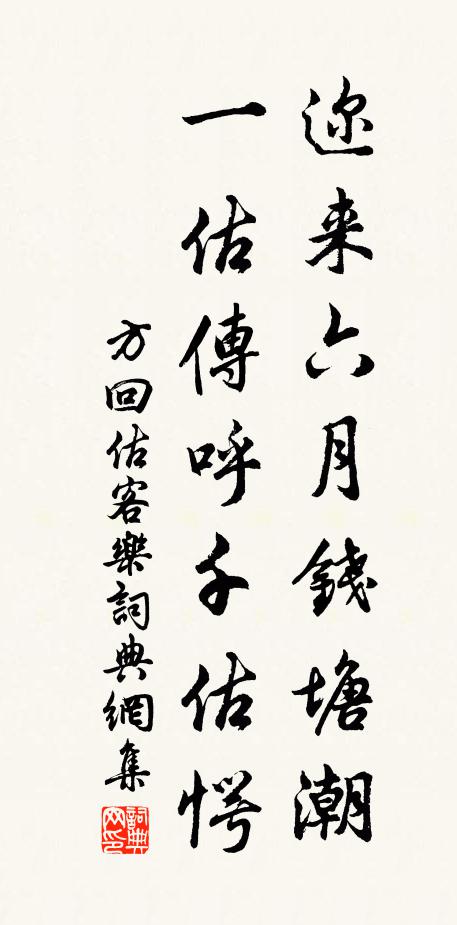 迩来六月錢塘潮
一估傳呼千估愕
方回估客樂詞典網集
詞典网印